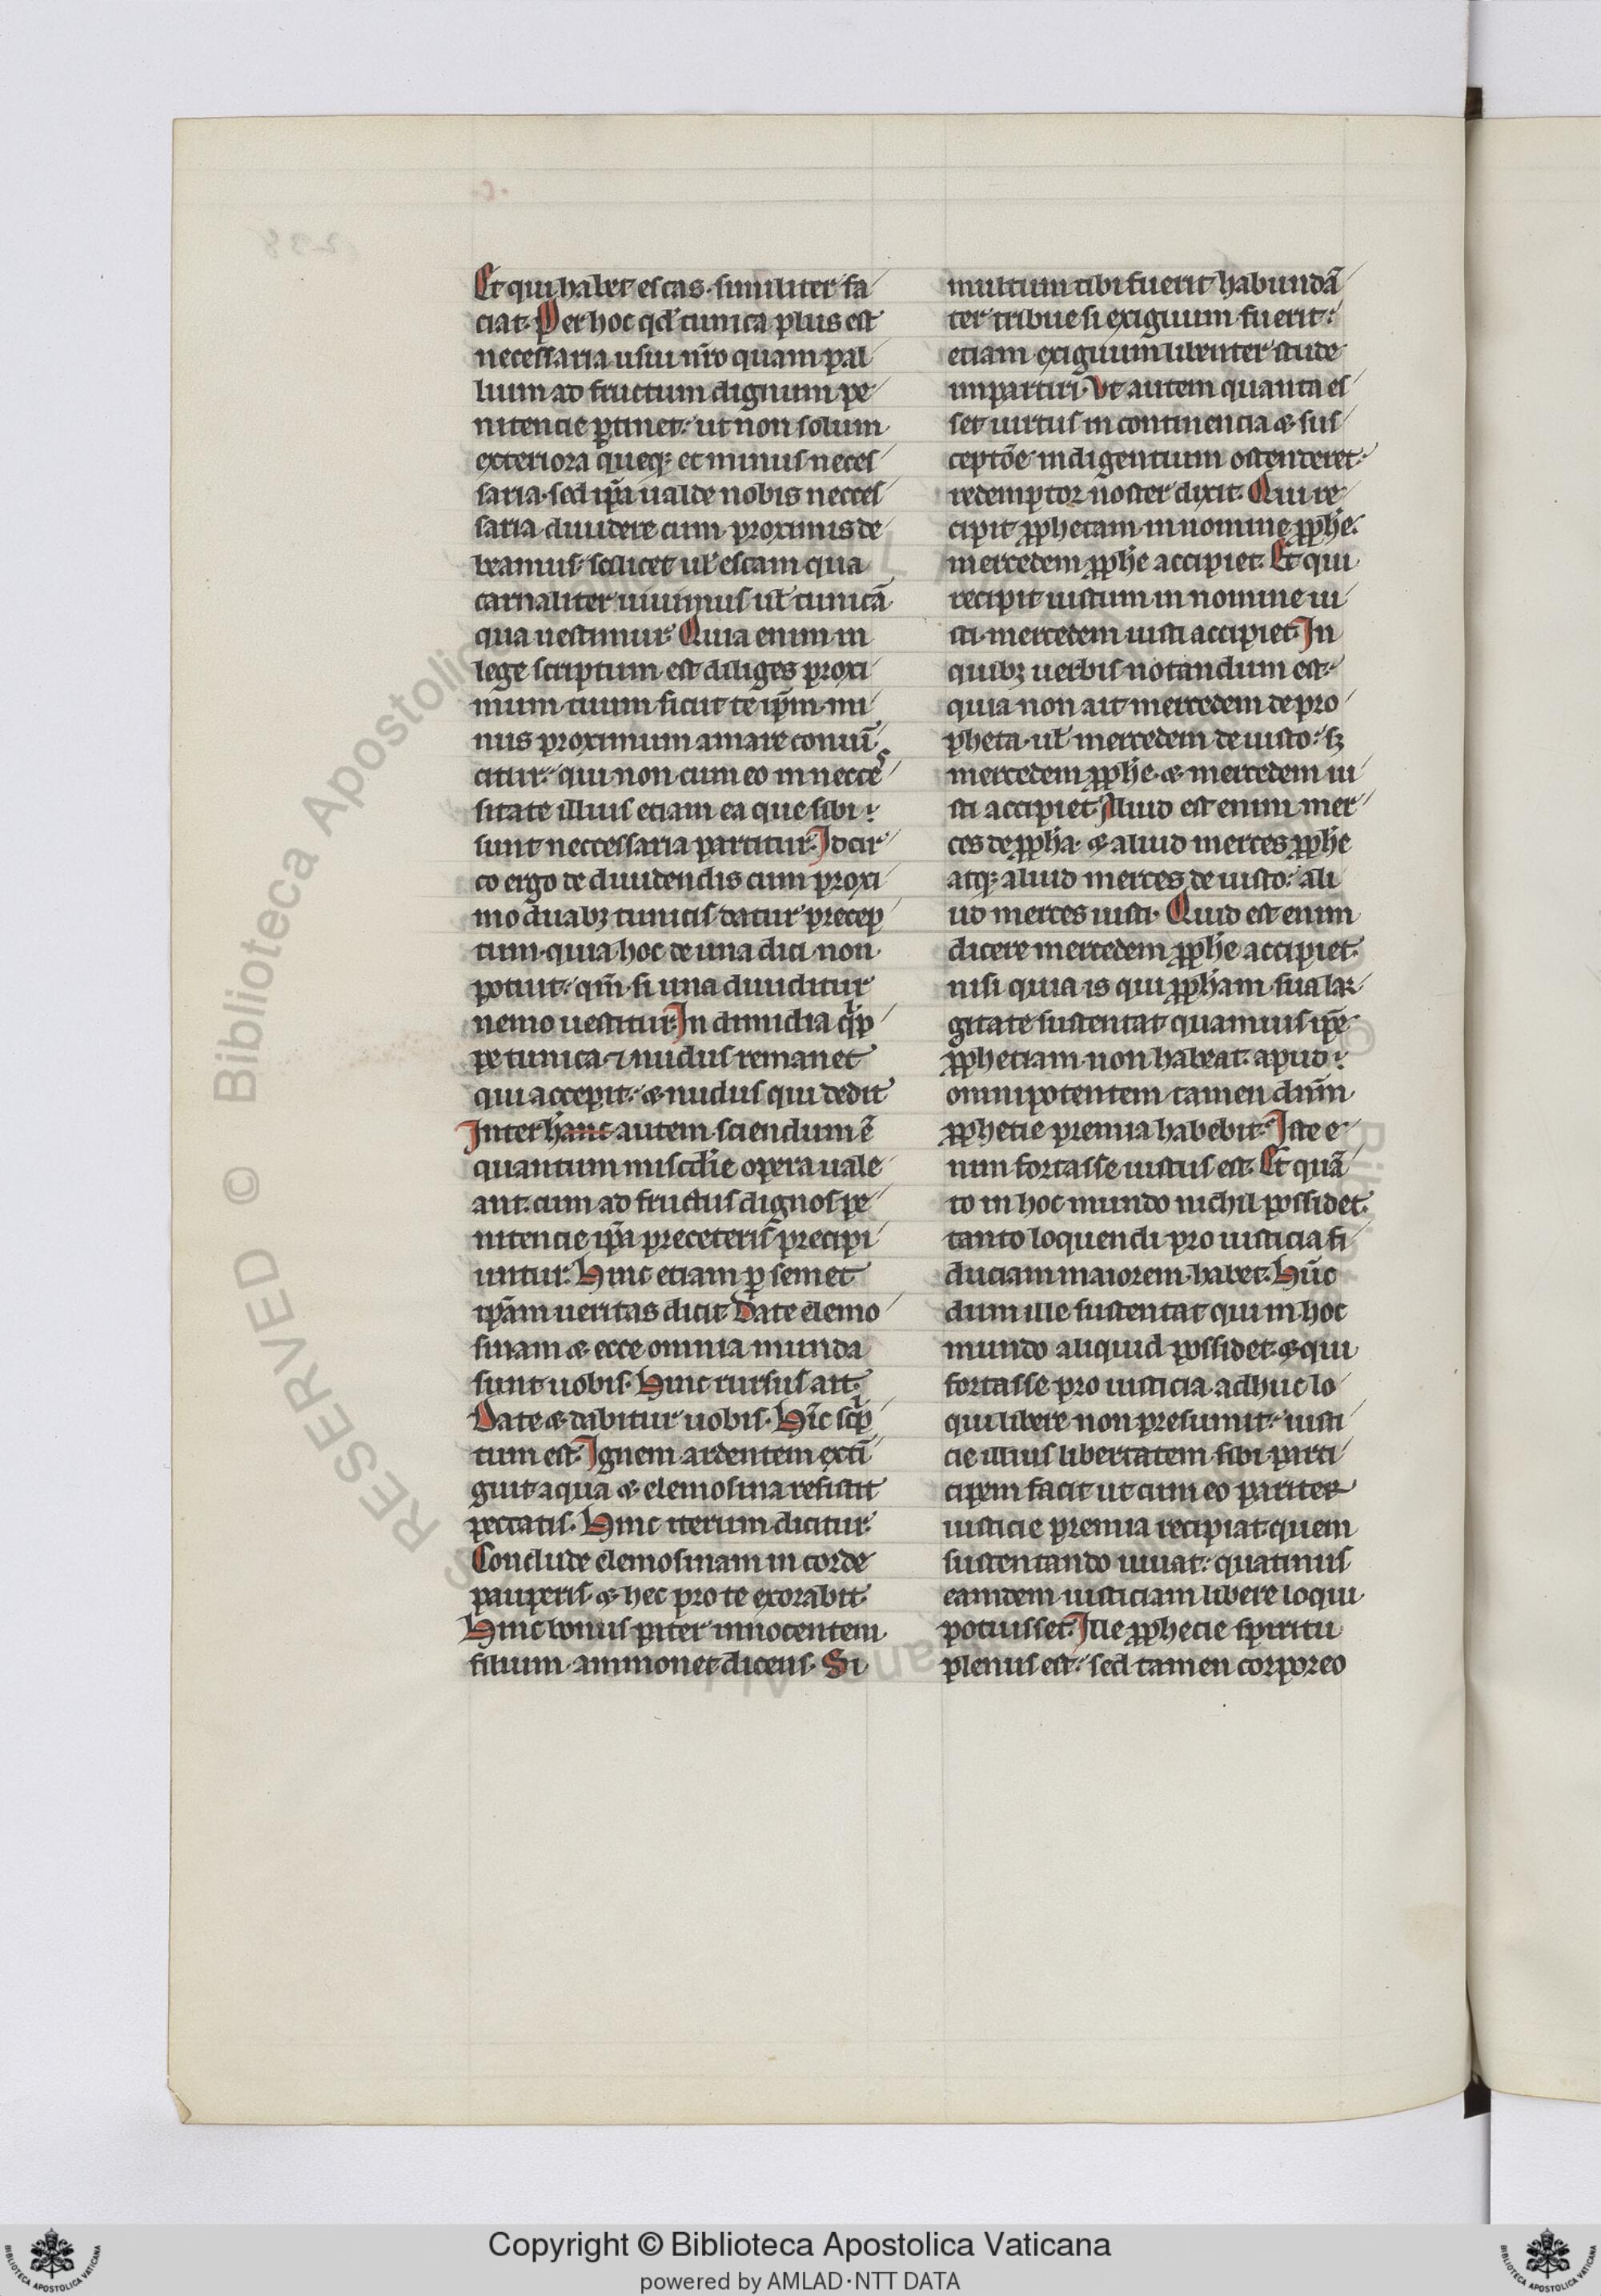 Et qui habet escas· similiter fa
ciat· Per hoc qd̛ tunica plus est
necessaria usui nr̄o quam pal
lium ad fructum dignum pe
nitencie ꝑtinet: ut non solum
exteriora queqꝫ et minus neces
saria· sed ip̄a ualde nobis necces
saria diuidere cum proximis de
beamus· scilicet ul̛ escam qua
carnaliter uiuimus ul̛ tunicā
qua uestimur· Quia enim in
lege scriptum est diliges proxi
mum tuum sicut te ip̄m· mi
nus proximum amare conuī
citur: qui non cum eo in necce
sitate illius etiam ea que sibi
sunt neccessaria partitur· Idcir
co ergo de diuidendis cum proxi
mo duabꝫ tunicis datur precep
tum· quia hoc de una dici non
potuit: qm̄ si una diuiditur
nemo uestitur· In dimidia qͥp
pe tunica ⁊ nudus remanet
qui accepit: & nudus qui dedit
Inter hanc autem sciendum ē
quantum misc̄die opera uale
ant· cum ad fructus dignos pe
nitencie ip̄a pre ceteris precipi
untur· Hinc etiam ꝑ semet
ip̄am ueritas dicit Date elemo
sinam & ecce omnia munda
sunt uobis· Hinc rursus ait·
Date & dabitur uobis· Hīc scͥp
tum est· Ignem ardentem exti
guit aqua & elemosina resistit
peccatis· Hinc iterum dicitur·
Conclude elemosinam in corde
pauperis· & hec pro te exorabit·
Hinc bonus pater innocentem
filium ammonet dicens· Si
multum tibi fuerit habundā
ter tribue si exiguum fuerit:
etiam exiguum libenter stude
impartiri· Ut autem quanta es
set uirtus in continencia & sus
ceptōe indigentium ostenderet·
redemptor noster dixit· Qui re
cipit ꝓphetam in nomine ꝓph̄e·
mercedem ꝓph̄e accipiet· Et qui
recipit iustum in nomine iu
sti· mercedem iusti accipiet· In
quibꝫ uerbis notandum est·
quia non ait mercedem de pro
pheta· ul̛ mercedem de iusto: sꝫ
mercedem ꝓph̄e· & mercedem iu
sti accipiet· Aliud est enim mer
ces de ꝓph̄a· & aliud merces ꝓph̄e
atqꝫ aliud merces de iusto: ali
ud merces iusti· Quid est enim
dicere mercedem ꝓph̄e accipiet·
nisi quia is qui ꝓph̄am sua lar
gitate sustentat quamuis ip̄e
ꝓphetiam non habeat· apud
omnipotentem tamen dn̄m
ꝓphetie premia habebit· Iste e
nim fortasse iustus est· Et quā
to in hoc mundo nichil possidet·
tanto loquendi pro iusticia fi
duciam maiorem habet· Hūc
dum ille sustentat qui in hoc
mundo aliquid possidet· & qui
fortasse pro iusticia adhuc lo
qui libere non presumit: iusti
cie illius libertatem sibi parti
cipem facit ut cum eo pariter
iusticie premia recipiat quem
sustentando iuuat: quatinus
eamdem iusticiam libere loqui
potuisset· Ille ꝓphecie spiritu
plenus est: sed tamen corporeo
Copyright © Biblioteca Apostolica Vaticana
powered by AMLAD·NTT DATA